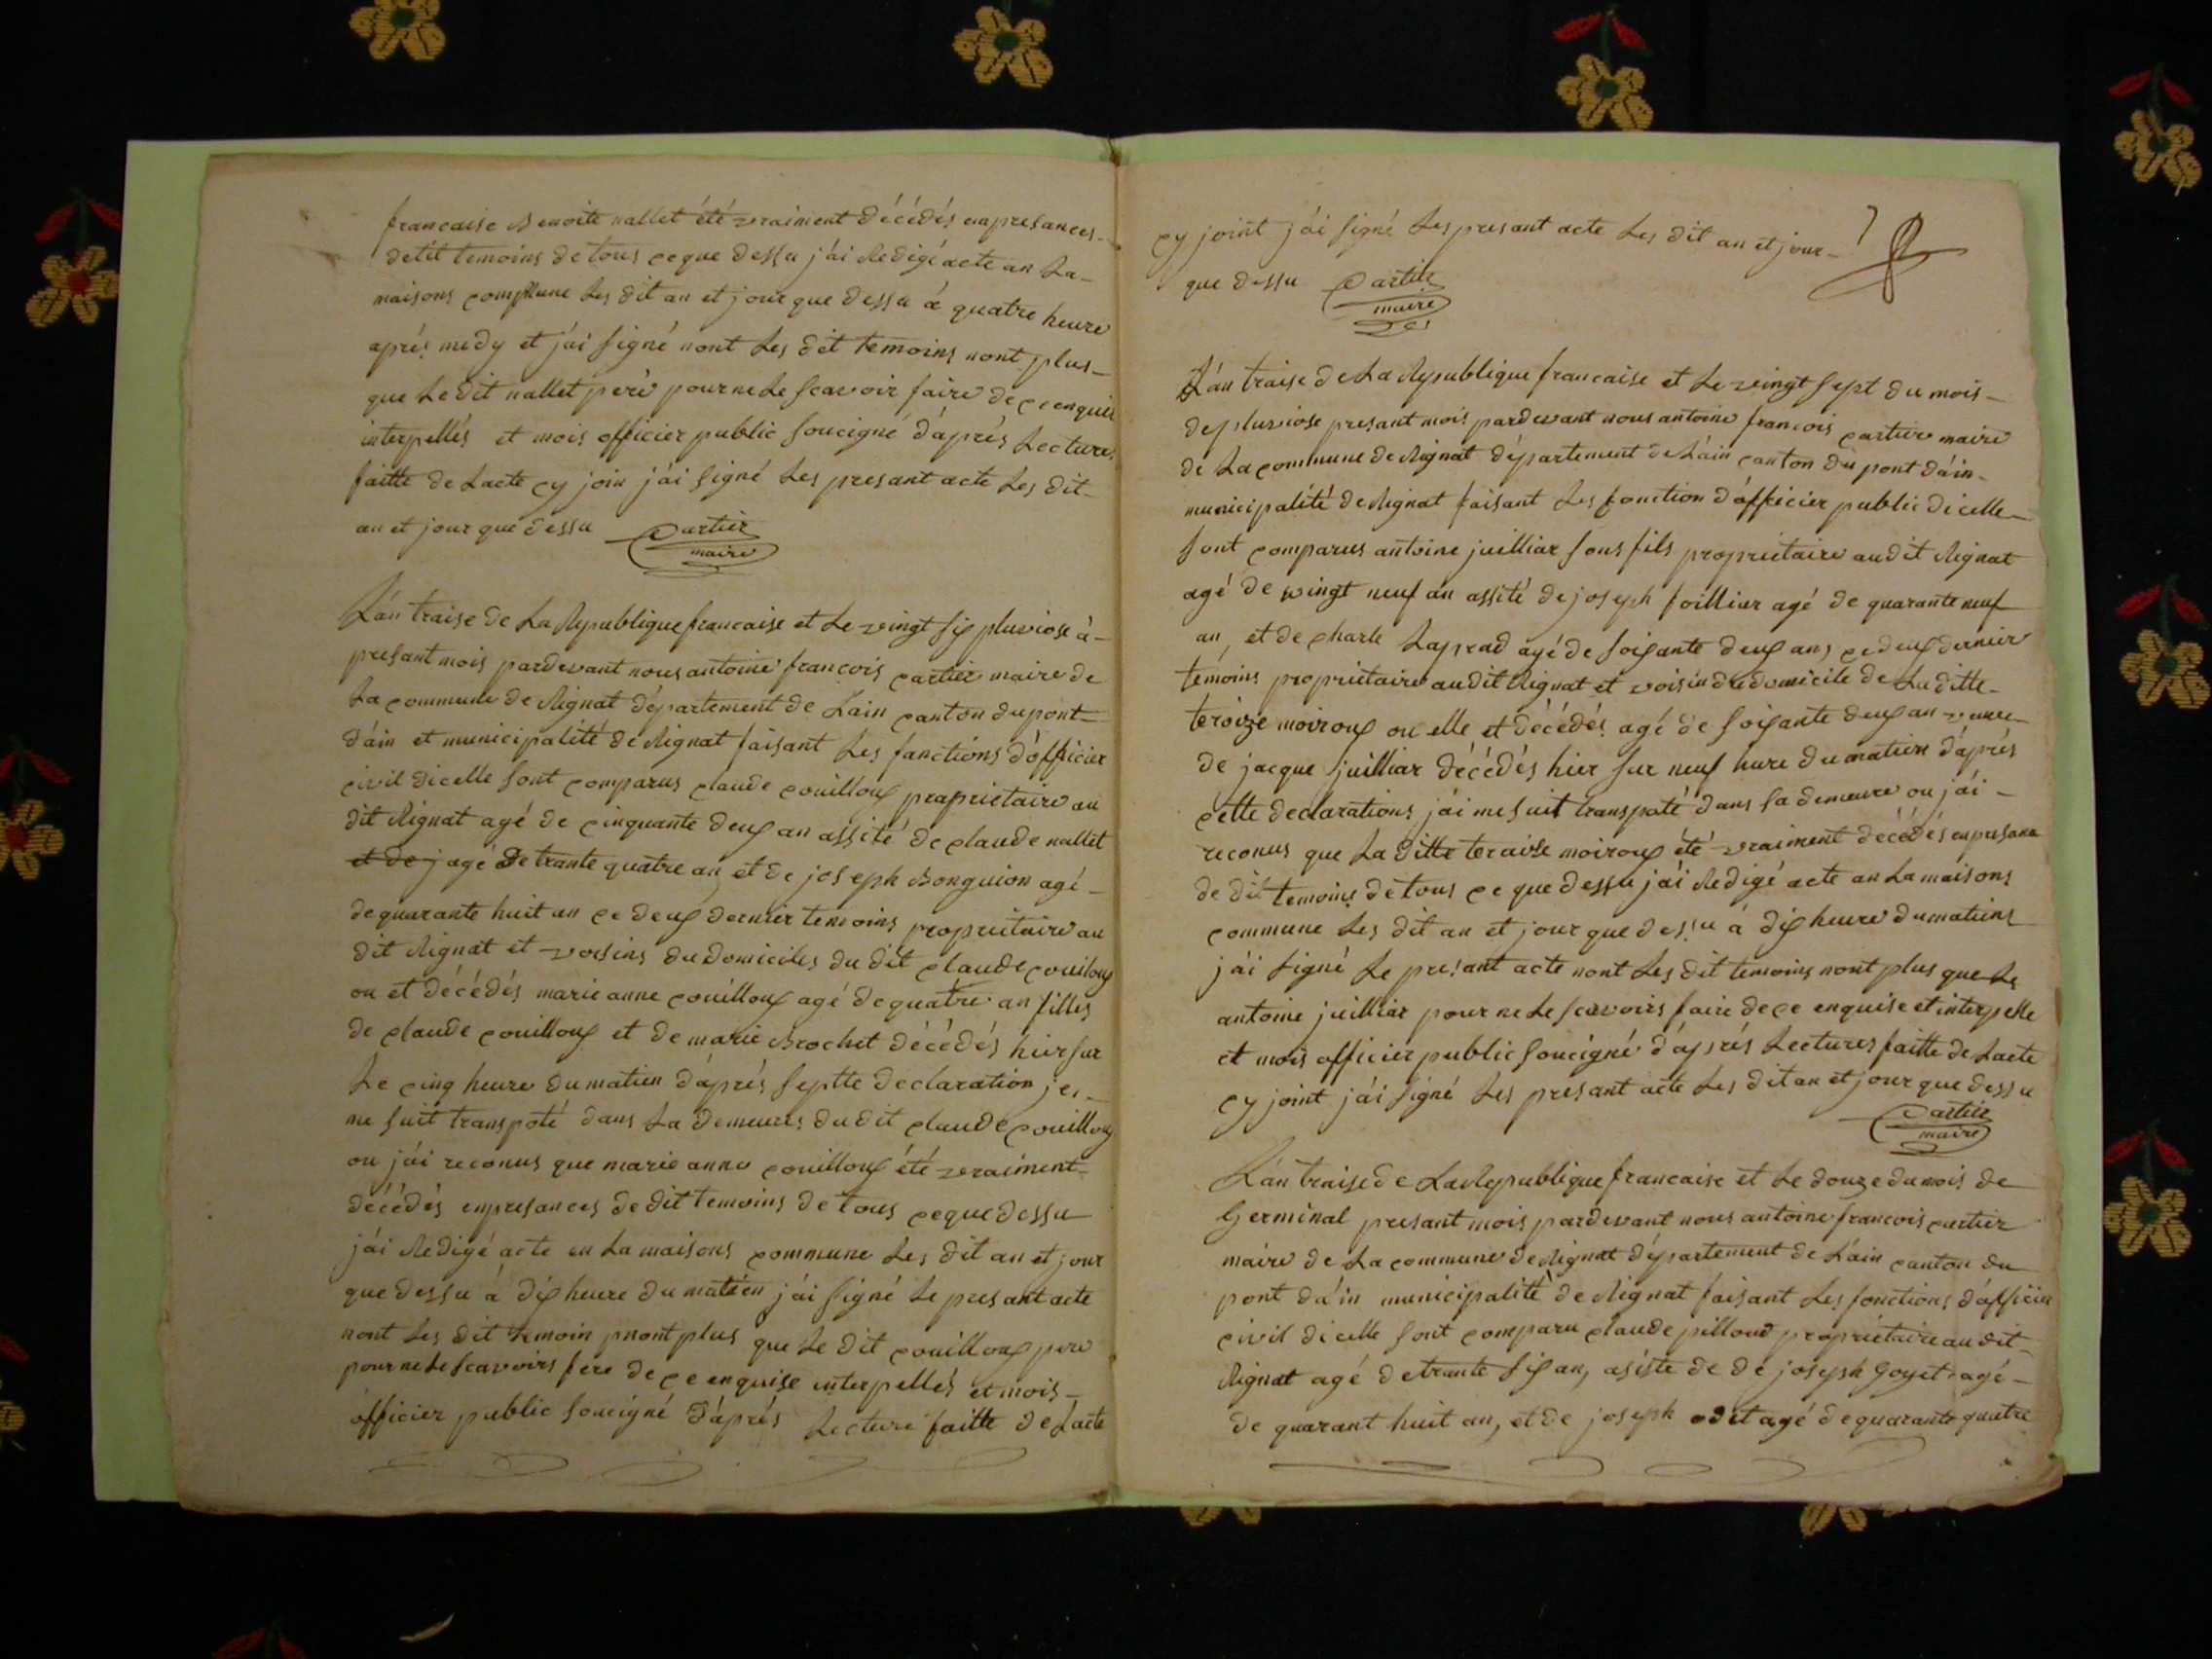 francaise Benoite nallet été vraiment décédés enpresances
detit temoins de tous ce que dessu j'ái Redigé acte an La
maisons commune Les dit an et jour que dessu á quatre heure
aprés medy et j'ái signé nont Les dit temoins nont plus
que Le dit nallet peré pour ne Le scavoir faire de ce enquis
interpellés et mois officier public soucigné d'áprés Lectures
faitte de Lacte cy join j'ái signé Les presant acte Les dit
an et jour que dessu Cartier
maire
L'án traise de La Republique francaise et Le vingt six pluviose à
presant mois pardevant nous antoine françois cartier maire de
La commune de Rignat département de Lain canton du pont
d'áin et municipalité de Rignat faisant Les fanctions d'officier
civil dicelle sont comparus claude couilloux praprietaire au
dit Rignat agé de cinquante deux an assité de claude nallet
et de j agé de trante quatre an, et de joseph Bonguion agé
de quarante huit an ce deux dernier temoins proprietaire au
dit Rignat et voisins du domiciles du dit claude couiloux
ou et décédés marie anne couilloux agé de quatre an filles
de claude couilloux et de marie Brochet décédés hier sur
Le cinq heure du matien d'áprés septte declaration jes
me suit transpoté dans La demeures du dit claude couilloux
ou j'ái reconus que marie anne couilloux été vraiment
décédés enpresances de dit temoins de tous ceque dessu
j'ái Redigé acte en La maisons commune Les dit an et jour
que dessu á dix heure du matien j'ái signé Le presant acte
nont Les dit temoin nont plus que Le dit couilloux pere
pour ne Le scavoirs fere de ce enquise interpellés et mois
officier public soucigné d'áprés Lecture faitte de Lacte
cy joint j'ái signé Les presant acte Les dit an et jour
que dessu Cartier
maire
7
L'án traise de La Republique francaise et Le vingt sept du mois
de pluviose presant mois pardevant nous antoine françois cartier maire
de La commune de Rignat département de L'áin canton du pont d'áin
municipalité de Rignat faisant Les fonction d'officier public dicelle
sont comparus antoine juilliar sous fils proprietaire audit Rignat
agé de vingt neuf an assité de joseph foillier agé de quarante neuf
an, et de charle Laprad agé de soixante deux an, ce deux dernier
temoins proprietaire audit Rignat et voisin du domicile de Laditte
teroize moiroux ou elle et décédés agé de soixante deux an veuve
de jacque juilliar décédés hier sur neuf hure du matien d'áprés
cette declarations j'ái me suit transpoté dans sa demeure ou j'ái
reconus que La ditte teraize moiroux été vraiment décédés enpresance
de dit temoins de tous ce que dessu j'ái Redigé acte an La maisons
commune Les dit an et jour que dessu á dix heure du matiens
j'ái signé Le presant acte nont Les dit temoins nont plus que Le
antoine juilliar pour ne Le scavoirs faire de ce enquise et interpelle
et mois officier public soucigné d'áprés Lectures faitte de Lacte
cy joint j'ái signé Les presant acte Les dit an et jour que dessu
Cartier
maire
L'án traise de La Republique francaise et Le douze du mois de
Germinal presant mois pardevant nous antoine francois cartier
maire de La commune de Rignat département de L'áin canton du
pont d'áin municipalité de Rignat faisant Les fonctions d'officier
civil dicelle sont comparu claude pilloud propriétaire au dit
Rignat agé de trante six an, asiste de de joseph Goyet agé
de quarant huit an, et de joseph odet agé de quarante quatre